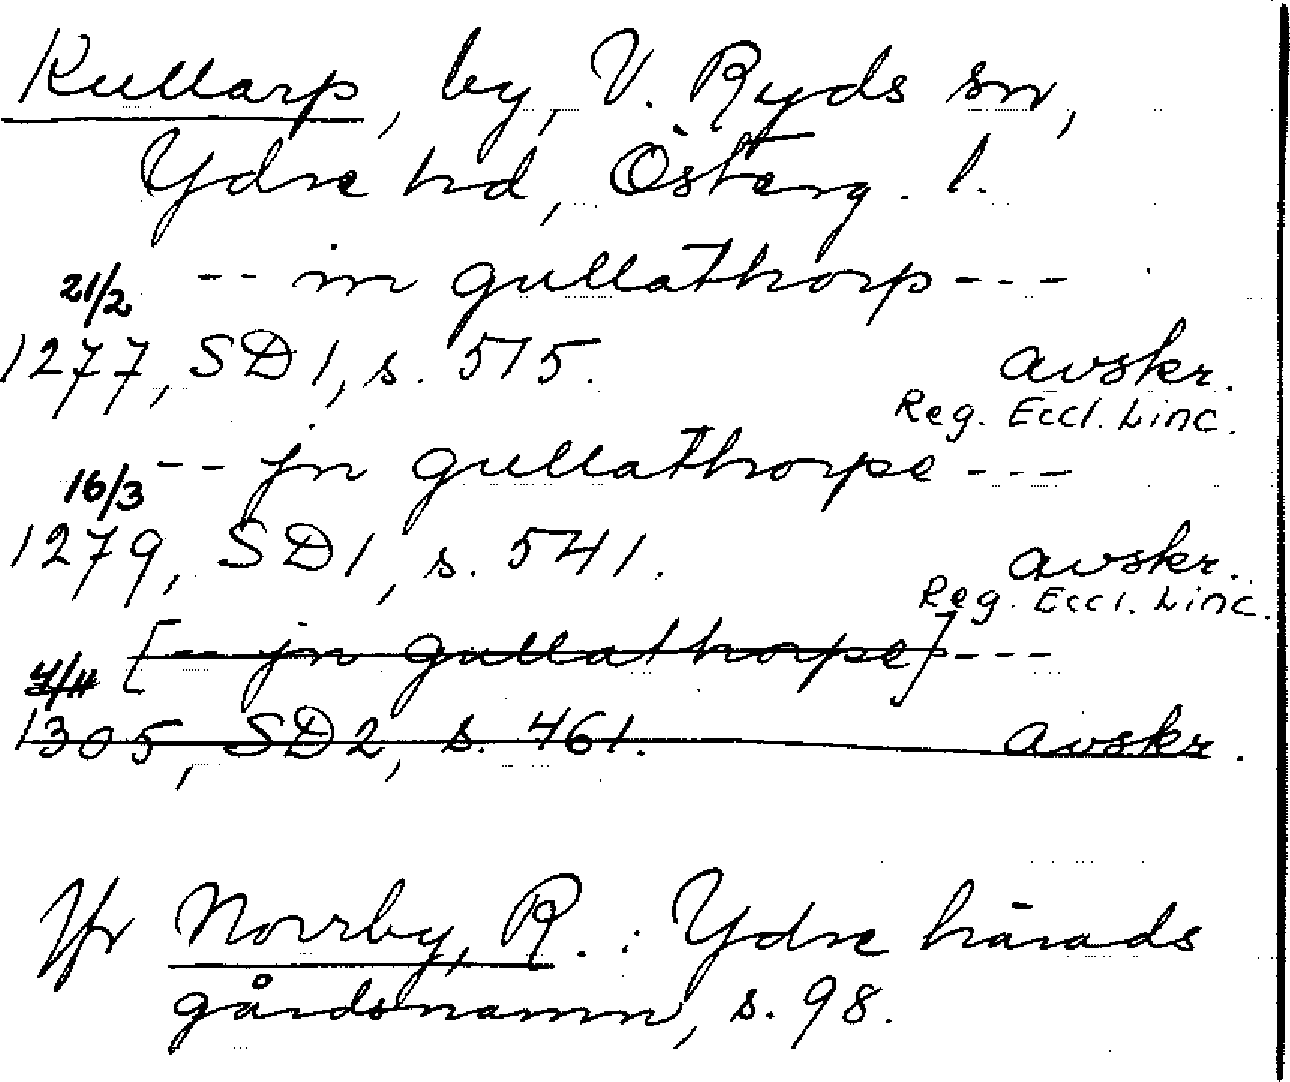 Kullarp, by, V. Ryds sn,
Ydre hd, Österg. l.
21/2 -- in gullathorp ---
1277, SD1, s. 515. avskr.
Reg. Eccl. Linc.
16/3 -- jn gullathorpe ---
1279, SD1, s. 541. avskr.
Reg. Eccl. Linc.
[-- jn gullathorpe] ---
1305, SD2, s. 461. avskr.
Jfr Norrby, R. : Ydre härads
gårdsnamn, s. 98.